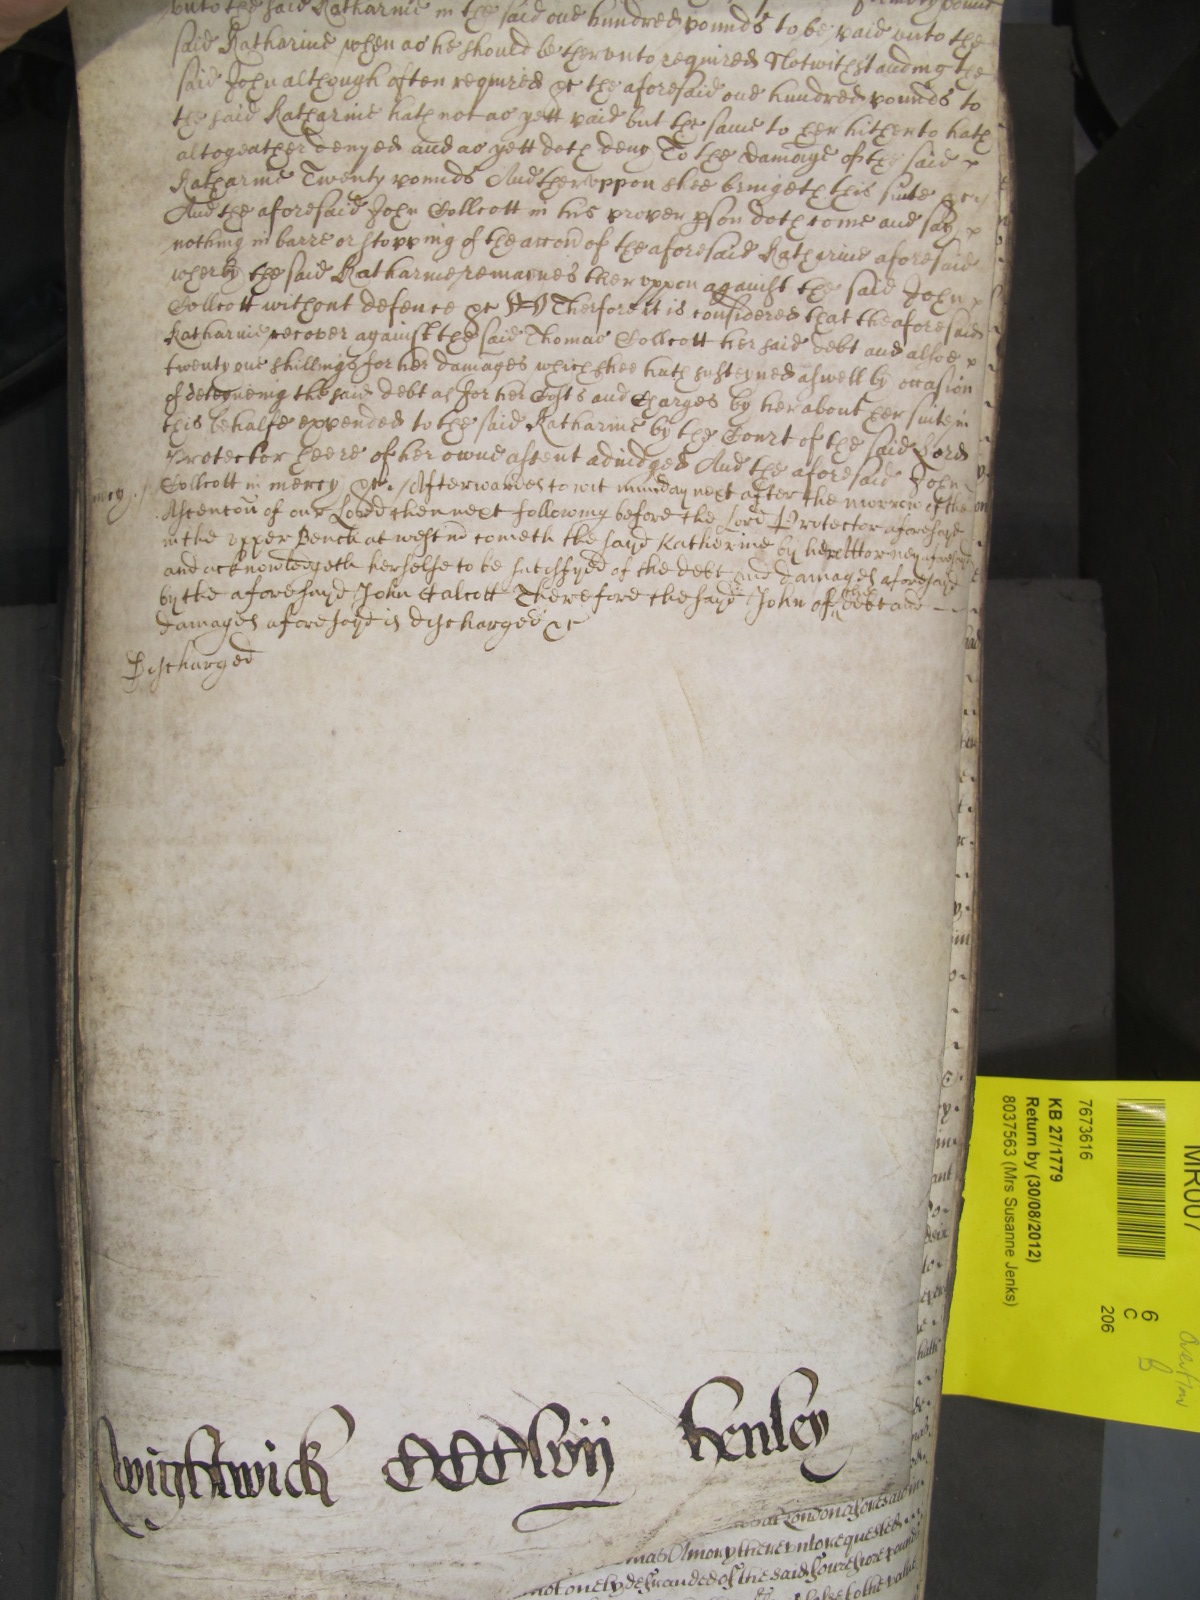 unto the said Katharine in the said one hundred pounds to be paid unto the
said Katharine when as he should be therunto required Notwithstanding the
said John although often required &c the aforesaid one hundred pounds to
the said Katharine hath not as yett paid but the same to her hitherto hath
altogeather denyed and as yett doth deny To the damage of the said
Katharine Twenty pounds And theruppon shee bringeth this suite &c
And the aforesaid John Collcott in his proper pson doth come and say
nothing in barre or stopping of the accon of the aforesaid Katharine aforesaid
wherby the said Katharine remaines theruppon against the said John
Collcott without defence &c Therfore it is considered that the aforesaid
Katharine recover against the said Thomas Collcott her said debt and alsoe
twenty one shillings for her damages which shee hath susteyned aswell by occasion
of deteyneing the said debt as for her Costs and Charges by her about her suite in
this behalfe expended to the said Katharine by the Court of the said Lord
Protector heere of her owne assent adiudged And the aforesaid John
mcy. Collcott in mercy &c. Afterwardes to wit munday next after the morrow of the
Ascencon of our Lord then next following before the Lord Protector aforesayd
in the upper Bench at westm cometh the sayd Katherine by her Attorney aforesayd
and acknowledgeth herselfe to be satisfyed of the debt and damages aforesayd
by the aforesayd John Calcott Therefore the sayd John of the debt and
damages aforesayd is discharged &c
Discharged
Wightwick CCCClvij Henley
at London aforesaid
mas Amory thereunto requested
not onely defrauded of the said fourescore pounds
to the value
7673616
KB 27/1779
Return by (30/08/2012)
8037563 (Mrs Susanne Jenks)
MR007
6
C
206